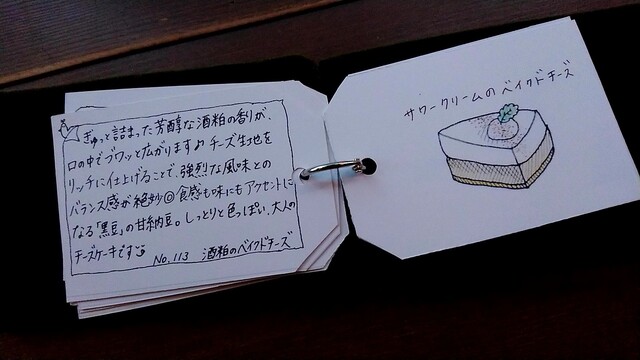 ぎゅっと詰まった芳醇な酒粕の香りが、
口の中でブワッと広がります♪チーズ生地を
リッチに仕上げることで、強烈な風味との
バランス感が絶妙◎食感も味にもアクセントに
なる「黒豆」の甘納豆。しっとりと色っぽい、大人の
チーズケーキです
No.113 酒粕のベイクドチーズ
サワークリームのベイクドチーズ